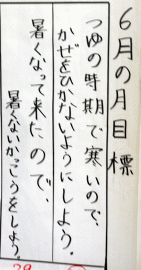 6月の月目標
つゆの時期で寒いので、
かぜをひかないようにしよう。
暑くなって来たので、
暑くないかっこうをしよう。